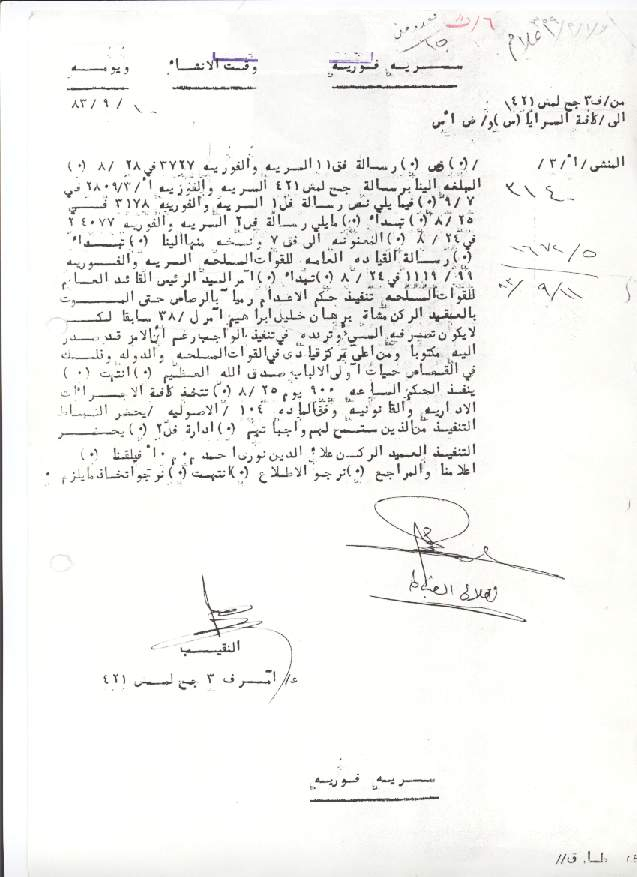 اعلام
سريه وفوريه وقت الانشاء ويومه
١٠ / ٩ / ٨٣
من / ف٣ جح لمش ٤٢١
الى / كافة السرايا (س) و / ض اس
المنشئ / أ / ٣ /
٣١٤
/ (٠) نص (٠) رسالة فق ١١ السريه والفوريه ٣٧٢٧ في ٢٨ / ٨ (٠)
المبلغه الينا برسالة جح لمش ٤٢١ السريه والفوريه أ / ٣ / ٢٨٠٩ في
٩/٧ (٠) فيما يلي نص رسالة فل١ السريه والفوريه ٣١٧٨ فــي
٨/٢٥ (٠) تبدأ (٠) مايلي رسالة فل٢ السريه والفوريه ٢٤٠٧٧
في ٢٤ / ٨ (٠) المعنونه الى فق ٧ ونسخه منها الينا (٠) تبدأ
(٠) رسالة القياده العامه للقوات المسلحه السريه والفوريه
١١١٩/٩٩ في ٢٤ / ٨ (٠) تبدأ (٠) أمر السيد الرئيس القائد العام
للقوات المسلحه تنفيذ حكم الاعدام رمياً بالرصاص حتى الموت
بالعقيد الركن مشاة برهان خليل ابراهيم آمر ل / ٣٨ سابقا لكي
لايكون تصرفه السيئ وتردده في تنفيذ الواجب رغم أن الامر قد صدر
اليه مكتوباً ومن اعلى مركز قيادي في القوات المسلحه والدوله ولكم
في القصاص حياة يا أولى الالباب صدق الله العظيم (٠) انتهت (٠)
ينفذ الحكم الساعه ٩٠٠ يوم ٨/٢٥ (٠) تتخذ كافة الاجراءات
الاداريه والقانونيه وفق الماده ١٠٤ / الاصوليه / يحضر الضباط
التنفيذ من الذين ستسمح لهم واجباتهم (٠) ادارة فل٢ (٠) يحضر
التنفيذ العميد الركن علاء الدين نورى احمد م٠م ٠١ فيلقنا (٠)
اعلامنا والمراجع (٠) نرجو الاطلاع (٠) انتهت (٠) نرجو اتخاذ مايلزم ٠
٩ / ١١
النقيب
ع / آمر ف ٣ جح لمش ٤٢١
سريه وفوريه